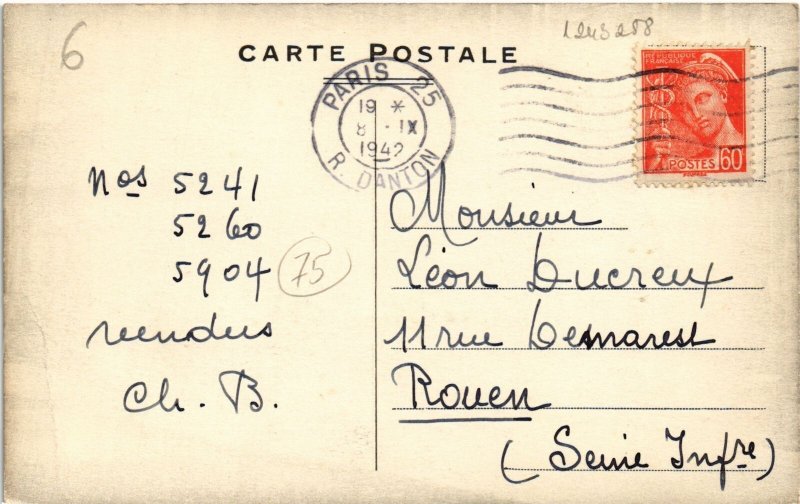 6
1243288
CARTE POSTALE
PARIS 25
19 *
8 - IX
1942
R. DANTON
REPUBLIQUE
FRANÇAISE
POSTES 60c
Nos 5241
5260
5904
75
vendus
Ch. B.
Monsieur
Léon Ducreux
11 rue Desmarest
Rouen
(Seine Infre)